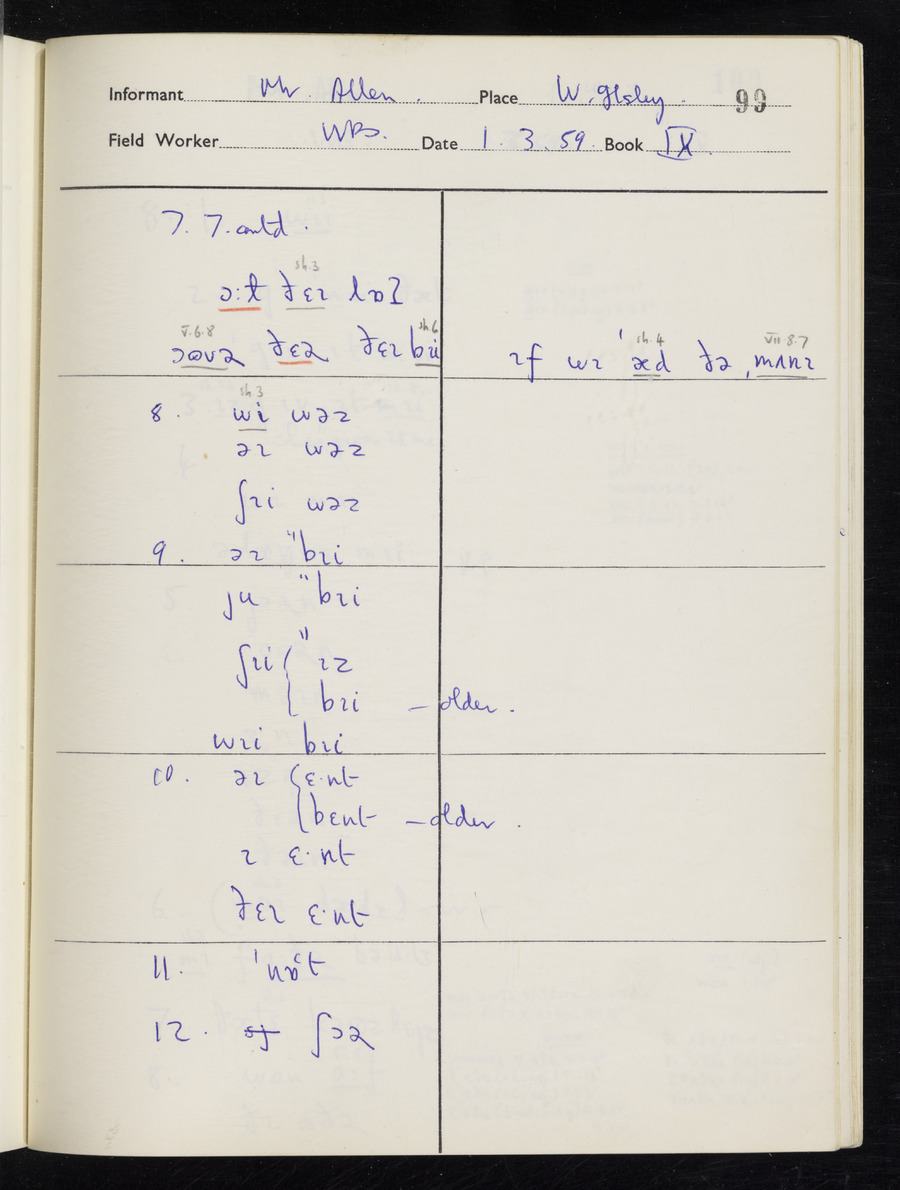 Informant Mr. Allen. Place W. Ilsley. 99
Field Worker WBS. Date 1.3.59 Book IX.
7. 7. contd.
sh.3
ɔ:t ðɛɪ
V.6.8 sh.6
ðɛɪ bɪi
sh.4 VII.8.7
ɪf wɪ ˈæd ðə ˌmʌnɪ
sh.3
8. wi wəz
əɪ wəz
ʃɪi wəz
9. əɪ "bɪi
ju "bɪi
ʃɪi { "ɪz
bɪi – older.
wɪi bɪi
10. əɪ { ɛ·nt
bɛnt – older.
ɪ ɛ·nt
ðɛɪ ɛ·nt
11.
12. ʃɔə